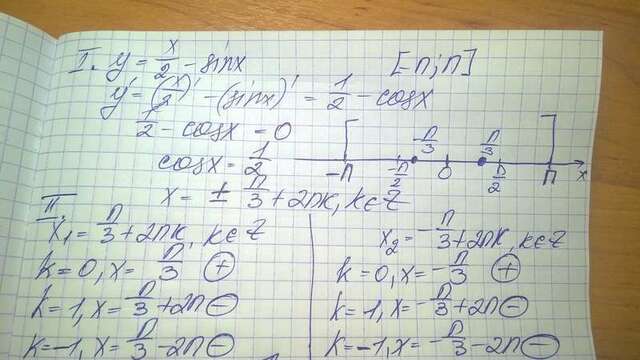 I. y = x/2 - sinx [-π; π]
y' = (x/2)' - (sinx)' = 1/2 - cosx
1/2 - cosx = 0
cosx = 1/2
-π -π/2 -π/3 0 π/3 π/2 π x
x = ± π/3 + 2πk, k∈Z
II.
x₁ = π/3 + 2πk, k∈Z
k = 0, x = π/3 ⊕
k = 1, x = π/3 + 2π ⊖
k = -1, x = π/3 - 2π ⊖
x₂ = -π/3 + 2πk, k∈Z
k = 0, x = -π/3 ⊕
k = 1, x = -π/3 + 2π ⊖
k = -1, x = -π/3 - 2π ⊖